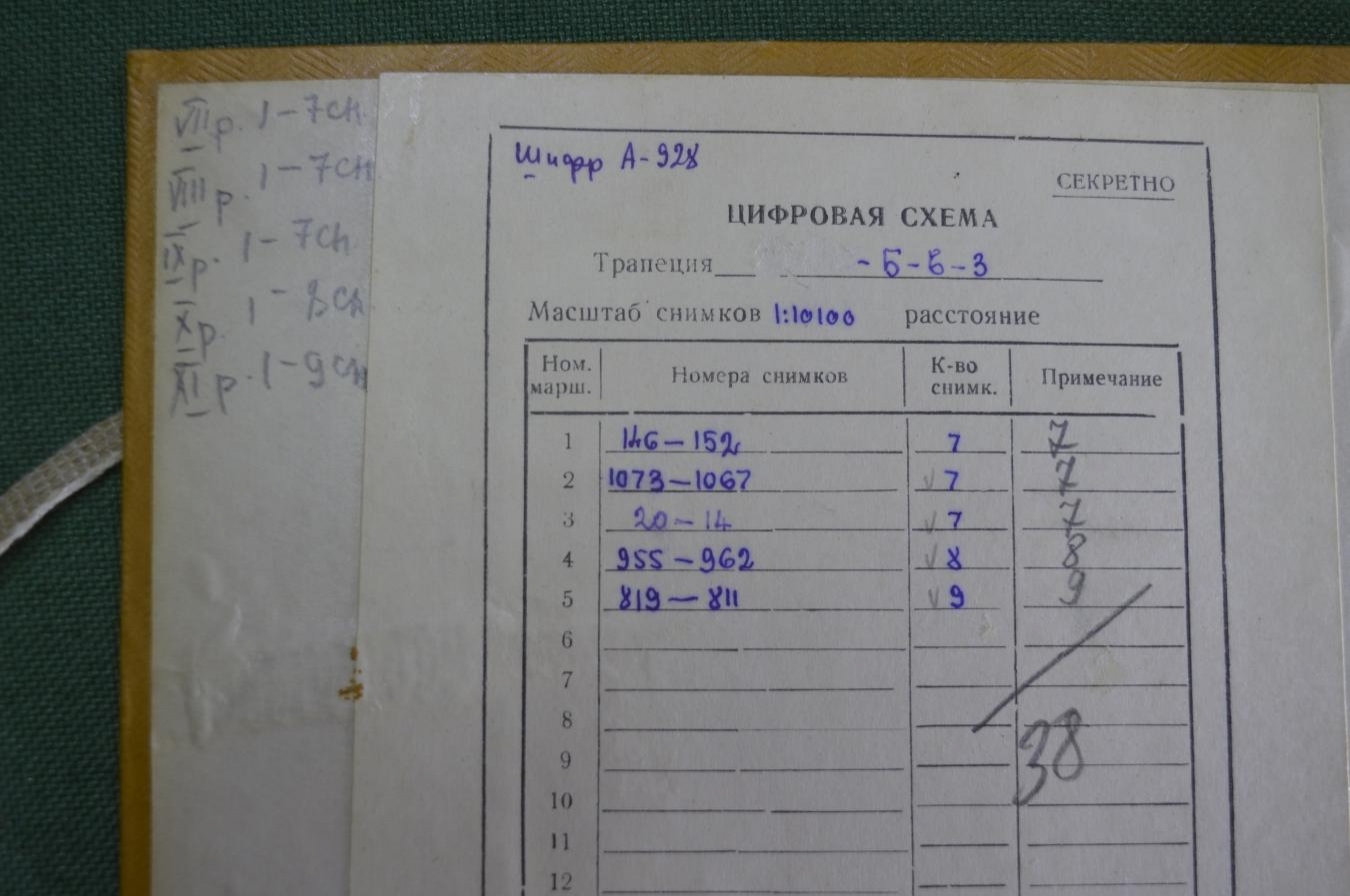 VII р. 1-7 сн
VIII р. 1-7 сн
IX р. 1-7 сн
X р. 1-8 сн
XI р. 1-9 сн
Шифр А-928
СЕКРЕТНО
ЦИФРОВАЯ СХЕМА
Трапеция -Б-в-3
Масштаб снимков 1:10100 расстояние
Ном. марш. Номера снимков К-во снимк. Примечание
1 146-152 7 7
2 1073-1067 √ 7 7
3 20-14 √ 7 7
4 955-962 √ 8 8
5 819-811 √ 9 9
6
7
8
9 38
10
11
12